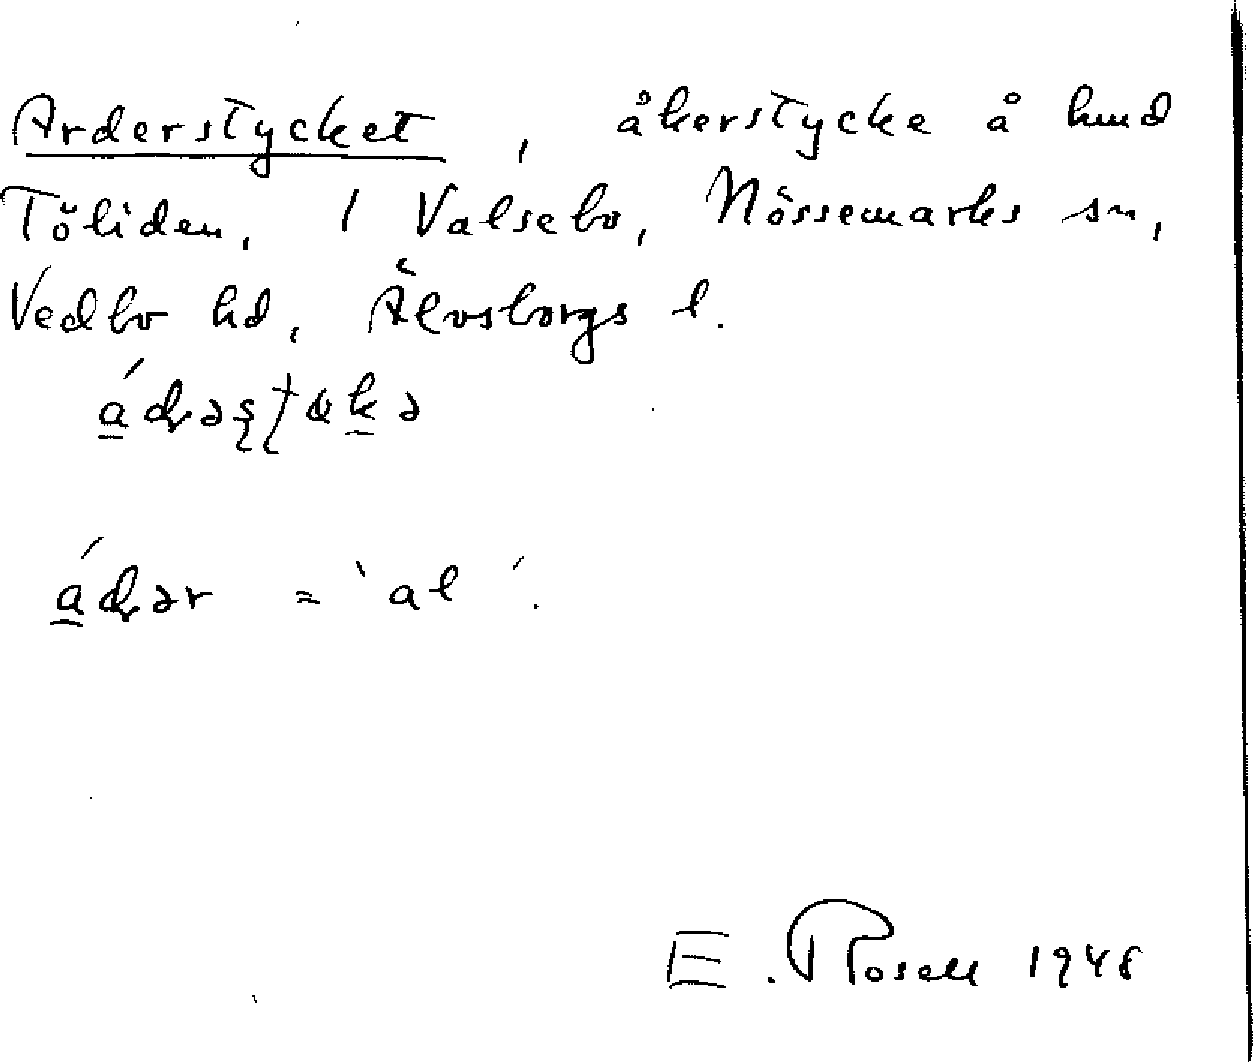 Arderstycket, åkerstycke å hmd
Töliden, 1 Valsebo, Nössemarks sn,
Vedbo hd, Älvsborgs l.
ádəṣṭəkə
ádər = 'al'.
E. Rosell 1948